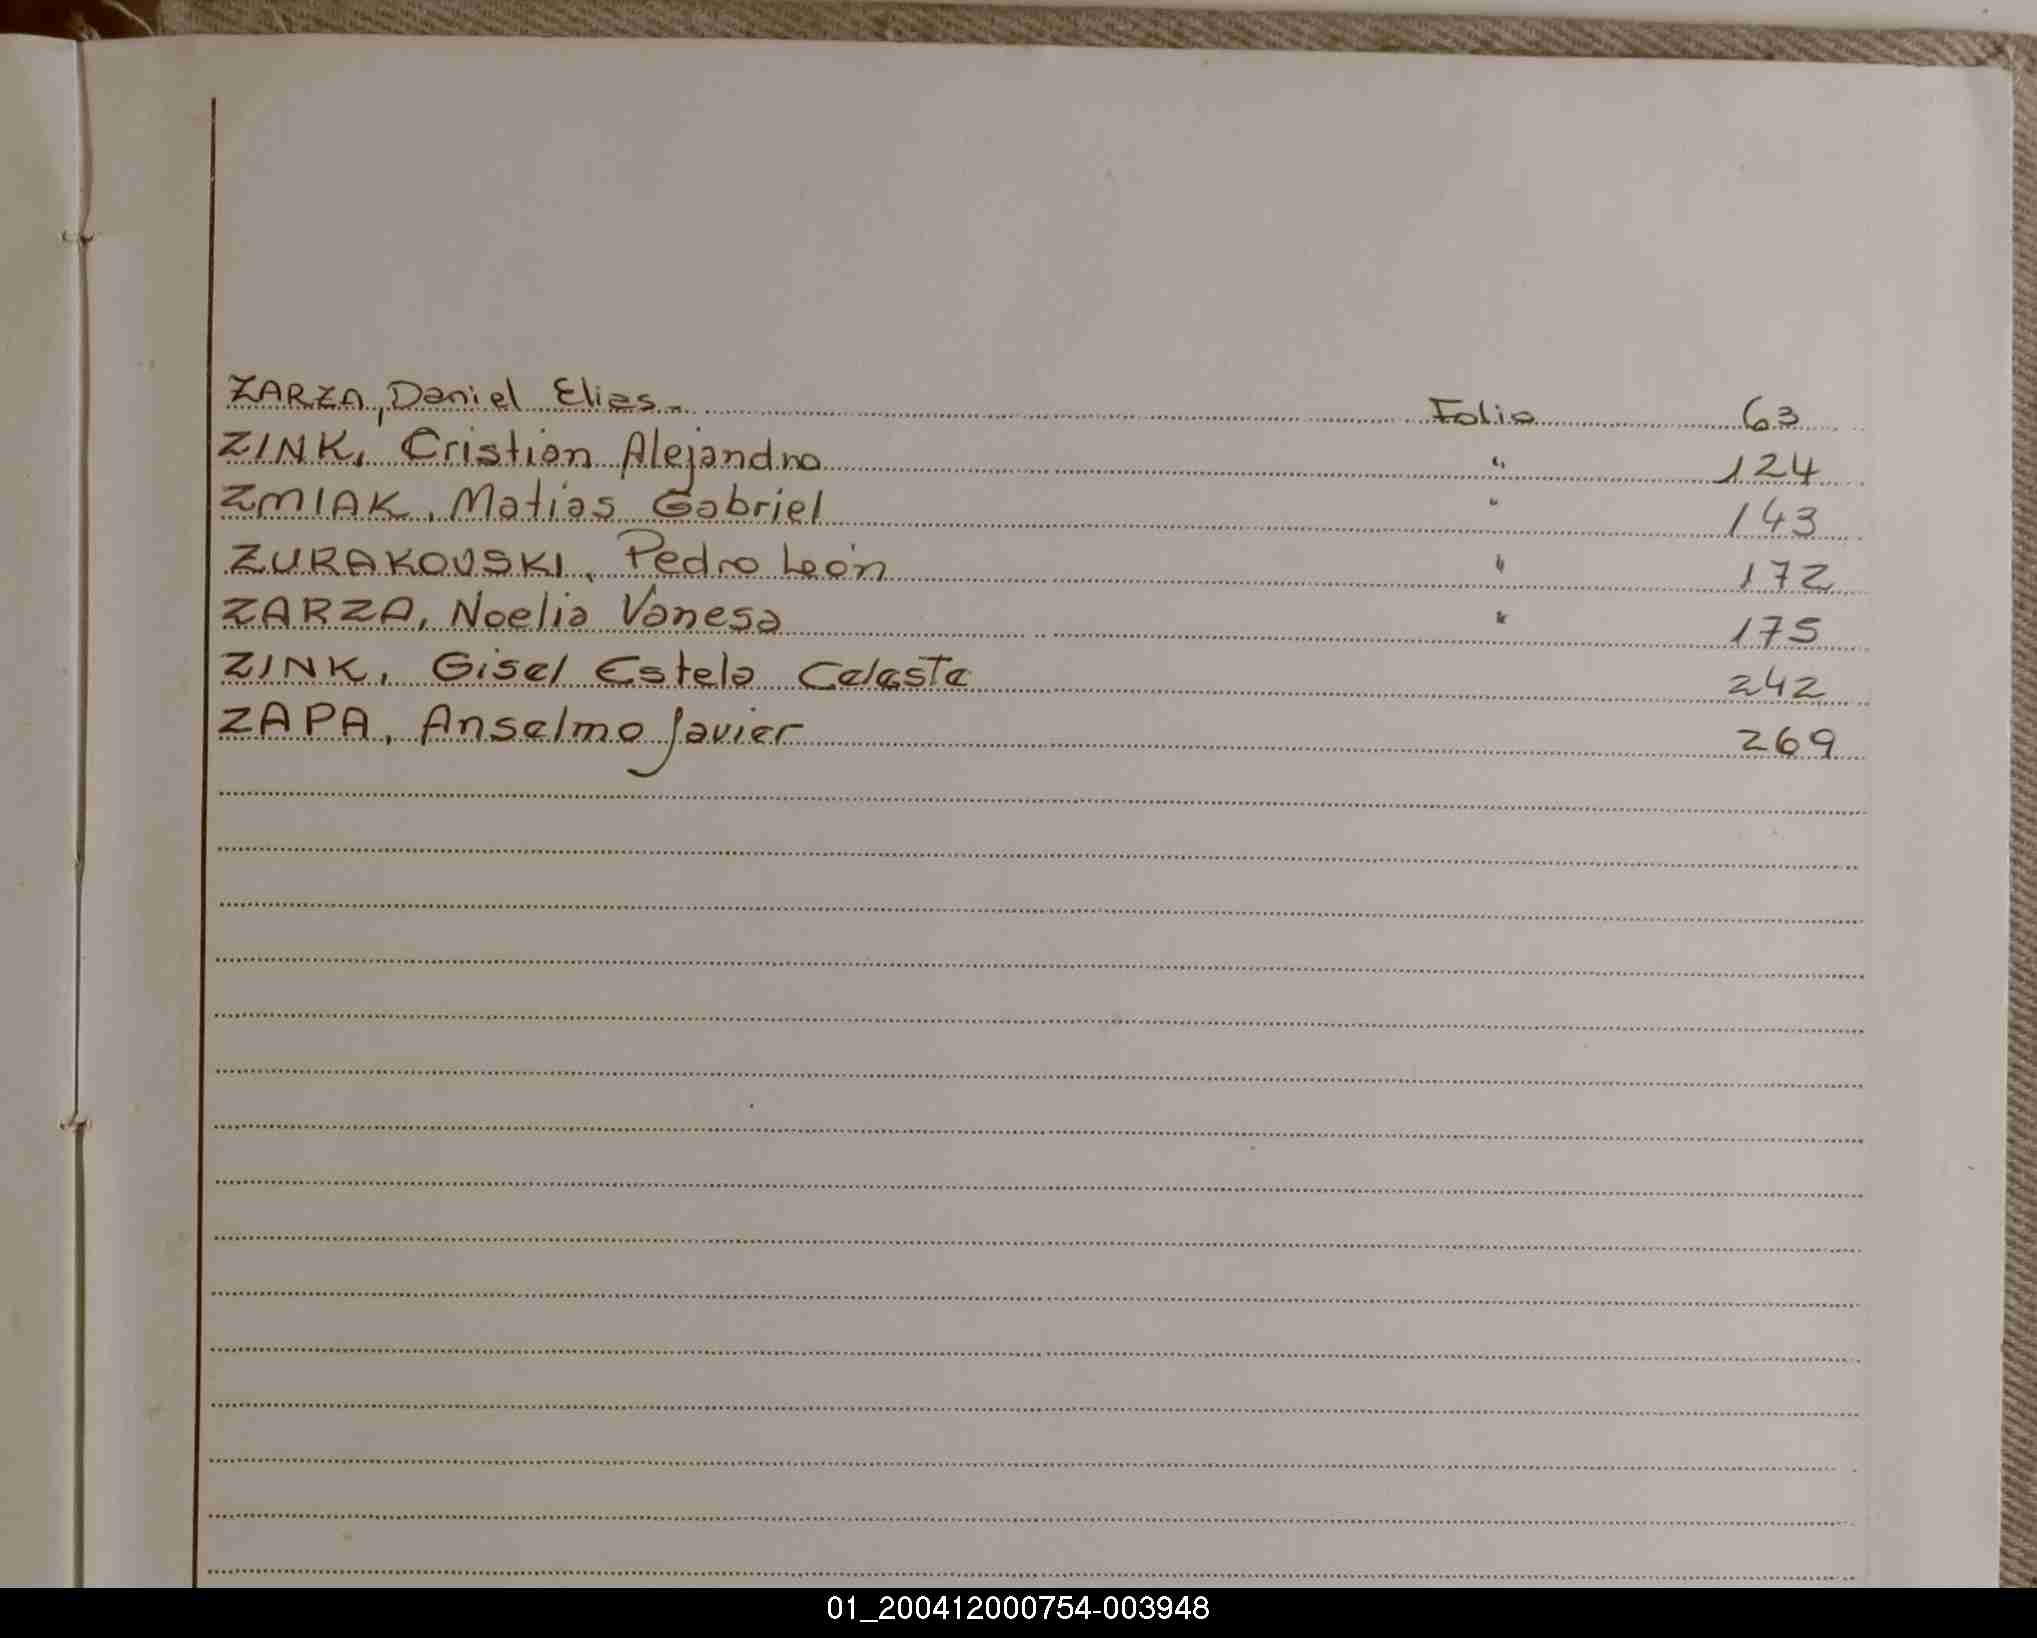 ZARZA, Daniel Elias. Folio 63
ZINK, Cristian Alejandro " 124
ZMIAK, Matías Gabriel " 143
ZURAKOVSKI, Pedro León " 172
ZARZA, Noelia Vanesa " 175
ZINK, Gisel Estela Celeste 242
ZAPA, Anselmo Javier 269
01_200412000754-003948